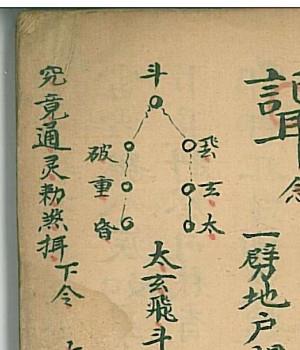 念
一劈地戶
斗
飛玄太
太玄飛斗
破重昏
究竟通灵勅煞下令